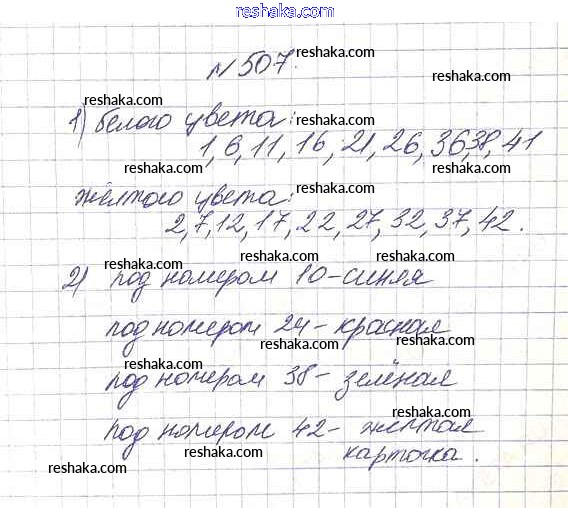 reshaka.com
reshaka.com
№ 507.
reshaka.com
1) белого цвета:
reshaka.com
1, 6, 11, 16, 21, 26, 36, 38, 41
reshaka.com reshaka.com
жёлтого цвета:
reshaka.com
2, 7, 12, 17, 22, 27, 32, 37, 42.
reshaka.com
2) под номером 10 - синяя
reshaka.com reshaka.com
под номером 24 - красная
reshaka.com reshaka.com
под номером 38 - зелёная
reshaka.com
под номером 42 - жёлтая
reshaka.com
карточка.
reshaka.com